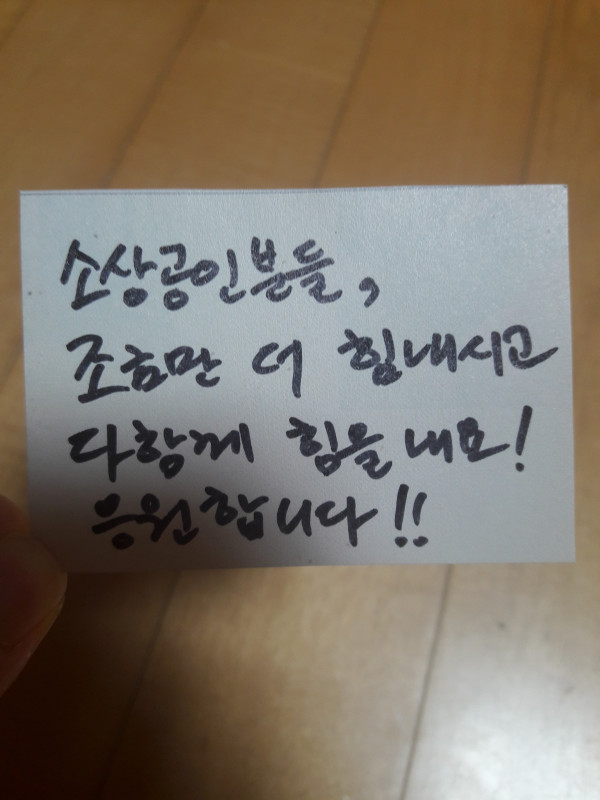 소상공인분들,
조금만 더 힘내시고
다함께 힘을내요!
응원합니다!!